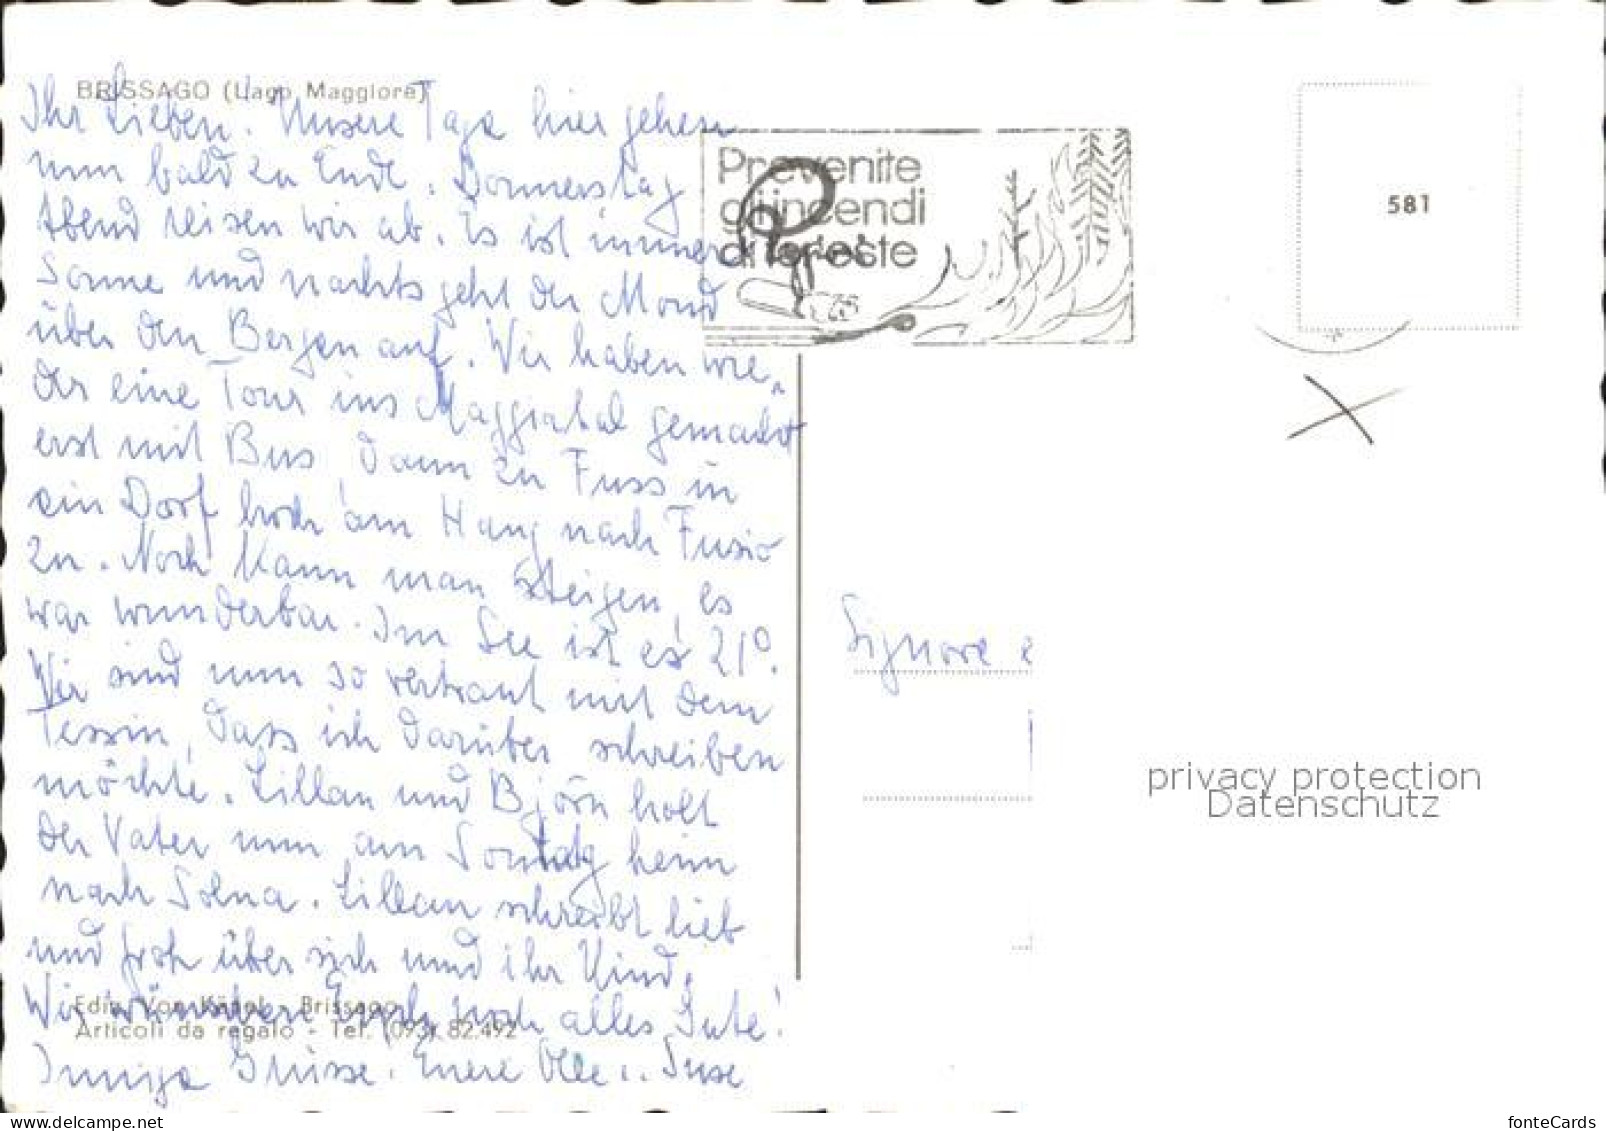 BRISSAGO (Lago Maggiore)
Ihr Lieben. Unsere Tage hier gehen
nun bald zu Ende. Donnerstag
Abend reisen wir ab. Es ist immer
Sonne und nachts geht der Mond
über den Bergen auf. Wir haben wie„
der eine Tour ins Maggiatal gemacht
erst mit Bus, dann zu Fuss in
ein Dorf hoch am Hang nach Fusio
zu. Noch kann man steigen, es
war wunderbar. Im See ist es 21°.
Wir sind nun so vertraut mit dem
Tessin, dass ich darüber schreiben
möchte. Lillan und Björn holt
der Vater nun am Sonntag heim
nach Solna. Lillan schreibt lieb
und froh über sich und ihr Kind.
Wir wünschen Euch noch alles Gute!
Innige Grüsse. Eure Olle.. Suse
Ediz. Von Känel - Brissago
Articoli da regalo - Tel. (093) 82.492
Prevenite
gli incendi
di foreste
581
Signore e
privacy protection
Datenschutz
www.delcampe.net
fonteCards